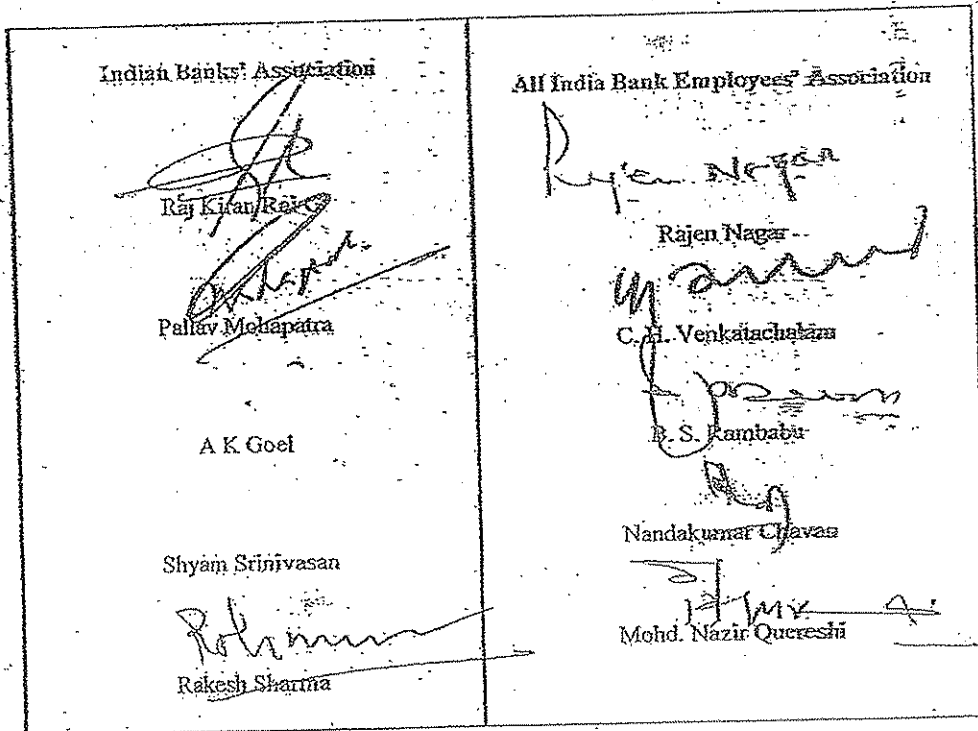 Indian Banks' Association
Raj Kiran Rai G.
Pallav Mohapatra
A K Goel
Shyam Srinivasan
Rakesh Sharma
All India Bank Employees' Association
Rajen Nagar
Rajen Nagar
C. H. Venkatachalam
B. S. Rambabu
Nandakumar Chavan
Mohd. Nazir Quereshi